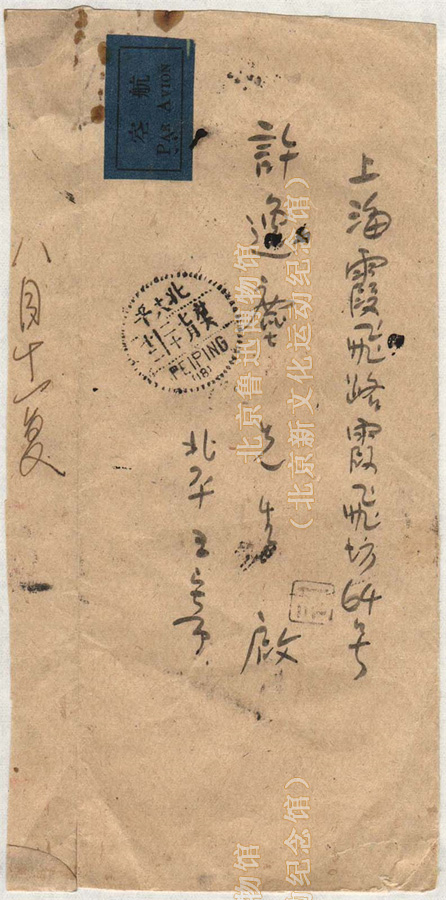 上海霞飛路霞飛坊64号
許遐 先生 啟
北平王寄
八月十一复
航空
PAR AVION
北平
PEIPING
(18)
北京鲁迅博物馆
(北京新文化运动纪念馆)
博物馆
动纪念馆)